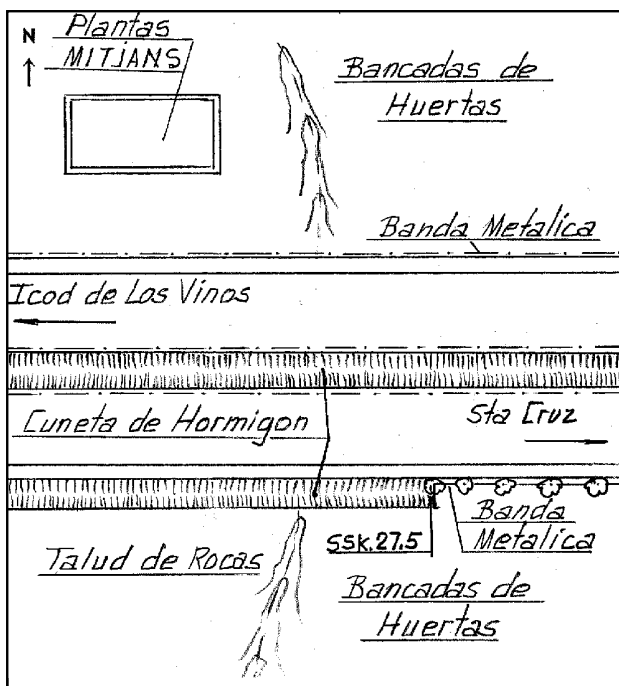 N
Plantas
MITJANS
Bancadas de
Huertas
Banda Metalica
Icod de Los Vinos
Cuneta de Hormigon
Sta Cruz
SSK.27.5
Banda
Metalica
Talud de Rocas
Bancadas de
Huertas